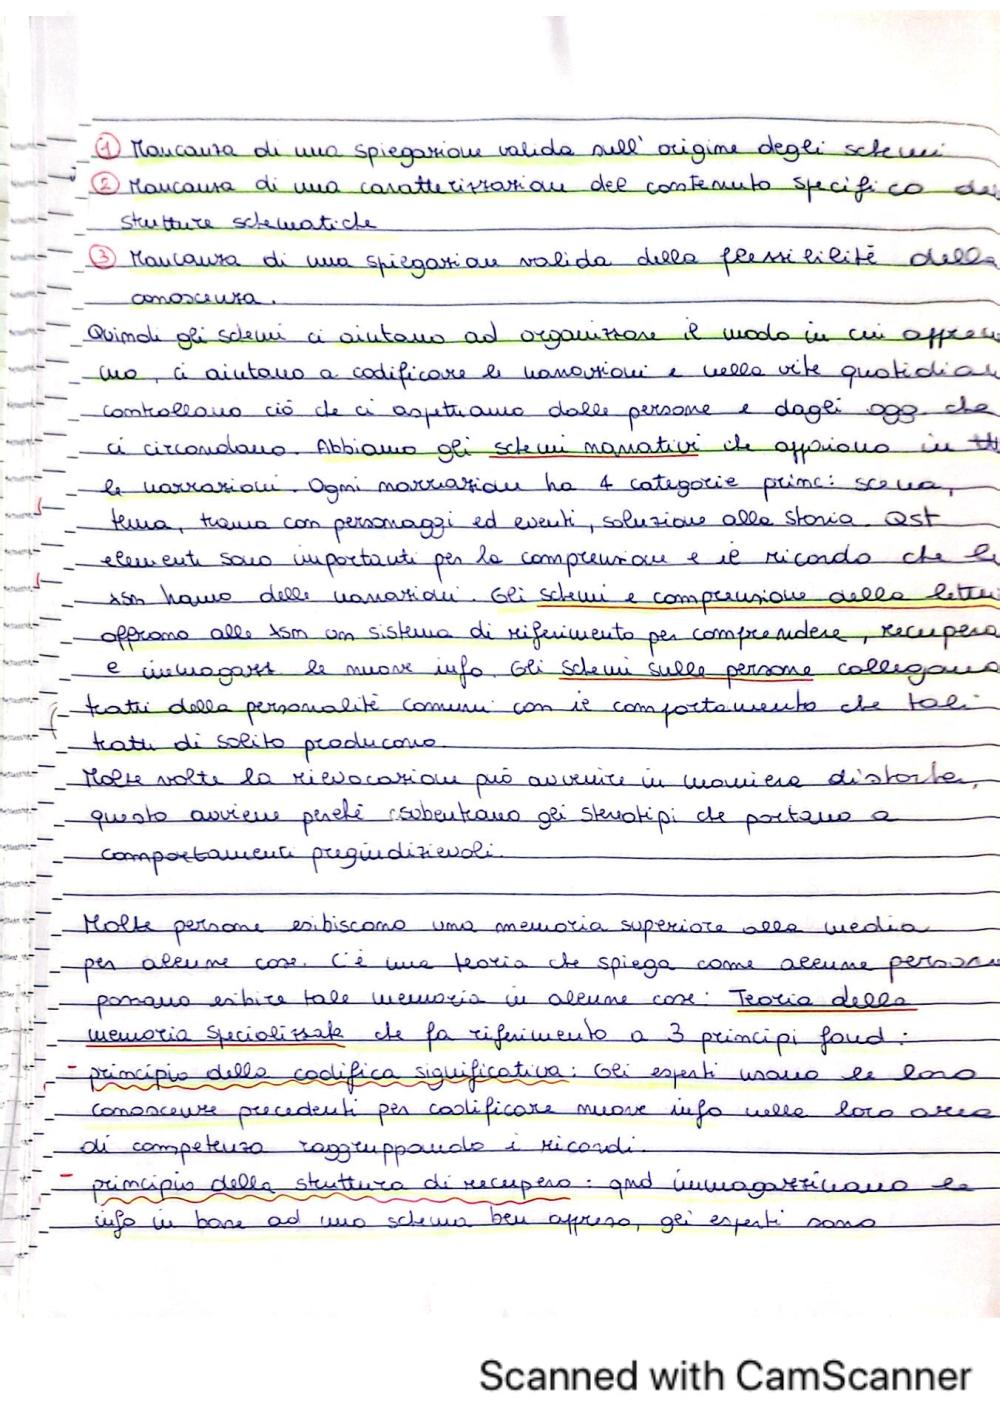 ① Mancanza di una spiegazione valida sull'origine degli schemi
② Mancanza di una caratterizzazione del contenuto specifico de
strutture schematiche
③ Mancanza di una spiegazione valida della flessibilità della
conoscenza.
Quindi gli schemi ci aiutano ad organizzare il modo in cui appren
mo, ci aiutano a codificare le narrazioni e nella vita quotidian
controllano ciò che ci aspettiamo dalle persone e dagli ogg che
ci circondano. Abbiamo gli schemi narrativi che appaiono in tt
le narrazioni. Ogni narrazione ha 4 categorie princ: scena,
tema, trama con personaggi ed eventi, soluzione alla storia. Qst
elementi sono importanti per la comprensione e il ricordo che le
hanno delle narrazioni. Gli schemi e comprensione della lettu
offrono alle un sistema di riferimento per comprendere, recupera
e immagazz le nuove info. Gli schemi sulle persone collegano
tratti della personalità comuni con il comportamento che tali
tratti di solito producono.
Molte volte la rievocazione può avvenire in maniera distorta,
questo avviene perché subentrano gli stereotipi che portano a
comportamenti pregiudizievoli.
Molte persone esibiscono una memoria superiore alla media
per alcune cose. C'è una teoria che spiega come alcune persone
possano esibire tale memoria in alcune cose: Teoria della
memoria specializzata che fa riferimento a 3 principi fond:
- principio della codifica significativa: Gli esperti usano le loro
conoscenze precedenti per codificare nuove info nella loro area
di competenza raggruppando i ricordi.
- principio della struttura di recupero: qnd immagazzinano le
info in base ad uno schema ben appreso, gli esperti sono
Scanned with CamScanner